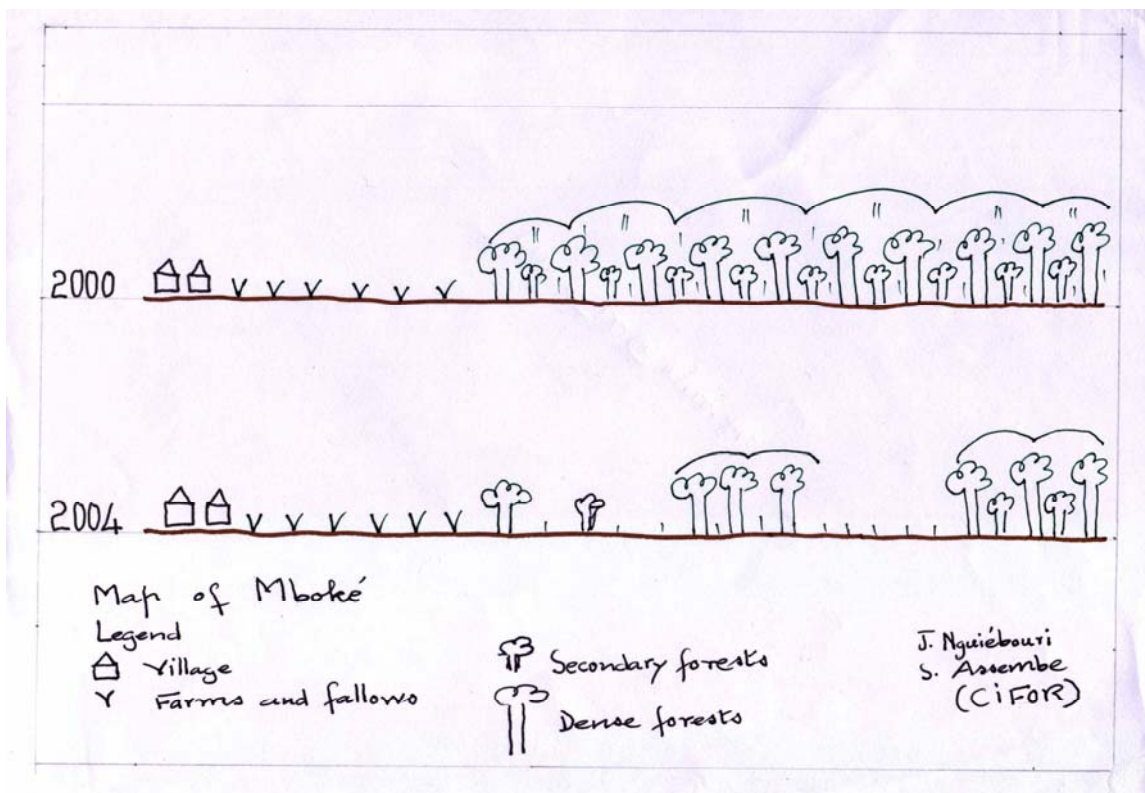 2000
2004
Map of Mboké
Legend
Village
Farms and fallows
Secondary forests
Dense forests
J. Nguiébouri
S. Assembe
(CiFOR)